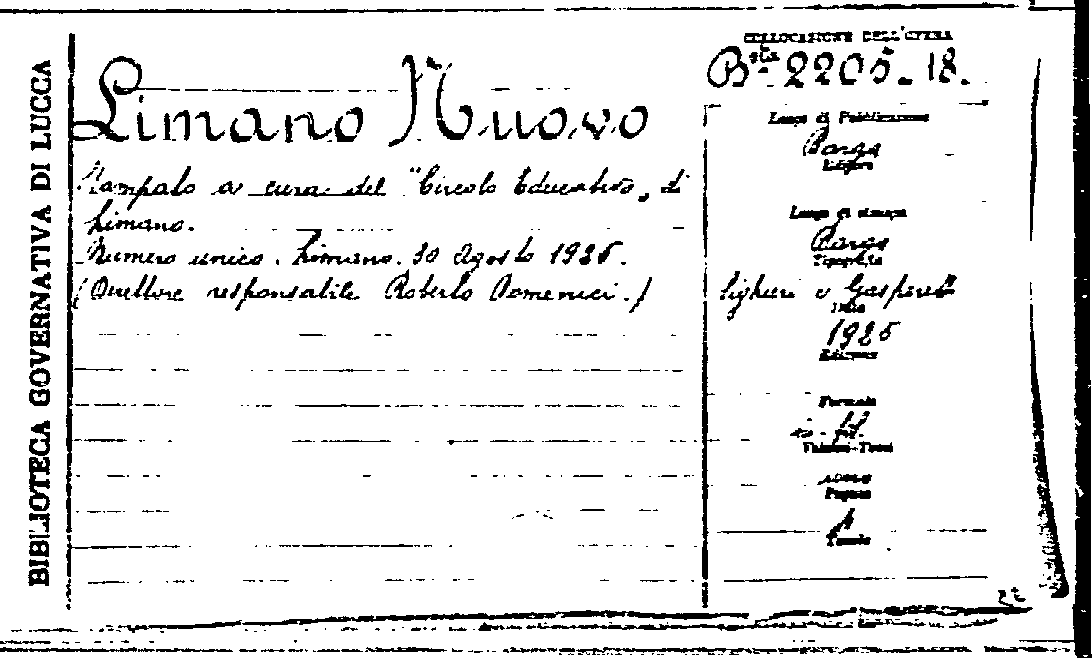 BIBLIOTECA GOVERNATIVA DI LUCCA
COLLOCAZIONE DELL'OPERA
Bta 2205.18.
Limano Nuovo
Stampato a cura del "Circolo Educativo„ di
Limano.
Numero unico. Limano. 30 Agosto 1925.
(Direttore responsabile Roberto Domenici.)
Luogo di Pubblicazione
Barga
Editore
Luogo di stampa
Barga
Tipografia
e Gasperetti
Data
1925
Edizione
Formato
Volumi-Tomi
Pagine
Tavole